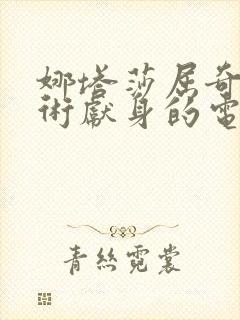 娜塔莎屈奇
術獻身的電
青絲霓裳